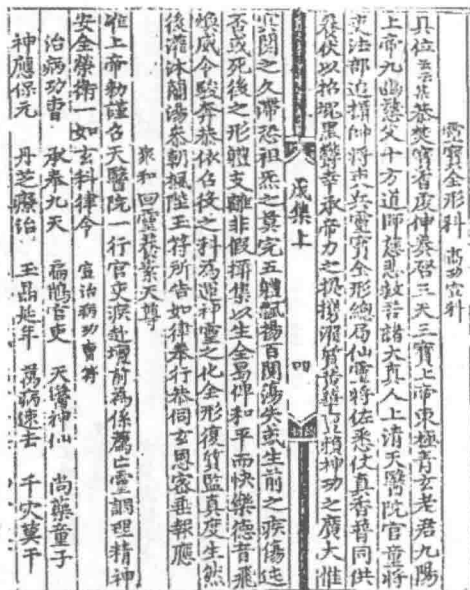 靈寶全形科 高功宣科
具位云云恭焚寶香虔伸恭啓三天三寶上帝東極青玄老君九陽
上帝九幽慈父十方道師慈悲救苦諸大真人上清天醫院官童將
吏法部追攝帥將大兵靈寶全形總局仙靈將佐悉仗真香普同供
養伏以招黑簿幸承帝力之濯質精神功之廣大惟
戌集上 四
冥關之久滯恐祖炁之莫完五體飄揚百關蕩失或生前之疾傷迍
否或死後之形體支離非假攝集以生全曷俾和平而快樂德音飛
煥威令駿奔恭依召役之科為運神靈之化全形復質監真度生然
後灌沐蘭湯叅朝楓陛玉符所告如律奉行恭伺玄恩密垂報應
衆和回靈葆素天尊
准上帝勅謹召天醫院一行官吏疾赴壇前為係薦亡靈調理精神
安全榮衛一如玄科律令 宣治病功曹符
治病功曹 承奉九天 扁鵲官吏 天醫神仙 尚藥童子
神應保元 丹芝療治 玉晶延年 萬病速去 千灾莫干